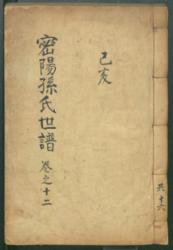 己亥
密陽孫氏世譜
卷之十二
共十六